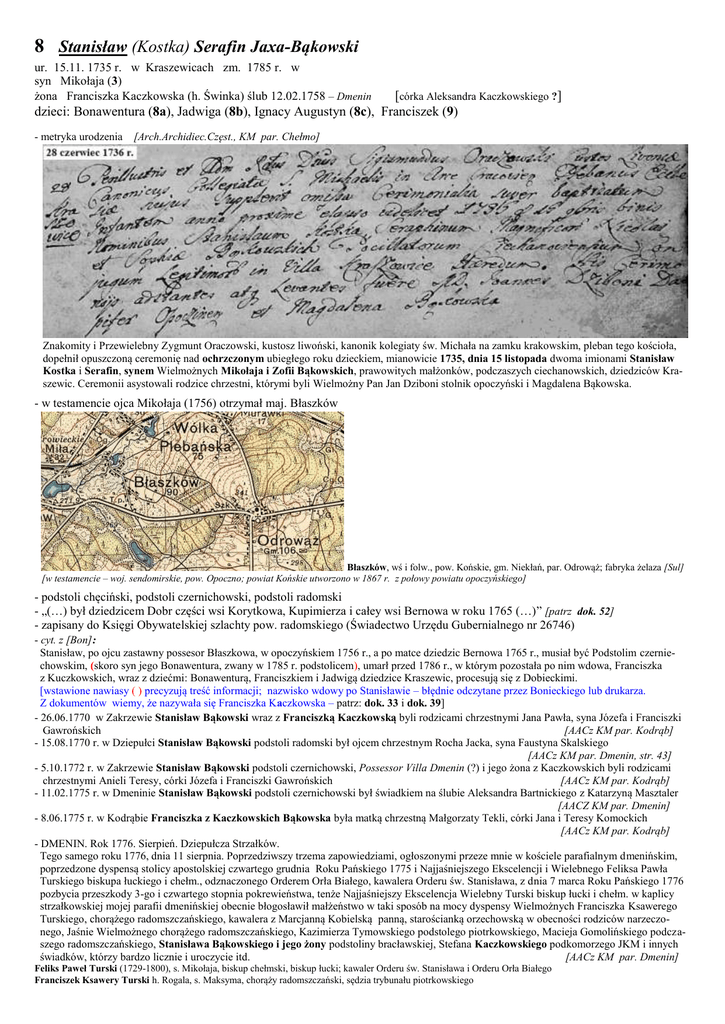 8 Stanisław (Kostka) Serafin Jaxa-Bąkowski
ur. 15.11. 1735 r. w Kraszewicach zm. 1785 r. w
syn Mikołaja (3)
żona Franciszka Kaczkowska (h. Świnka) ślub 12.02.1758 – Dmenin [córka Aleksandra Kaczkowskiego ?]
dzieci: Bonawentura (8a), Jadwiga (8b), Ignacy Augustyn (8c), Franciszek (9)
- metryka urodzenia [Arch.Archidiec.Częst., KM par. Chełmo]
28 czerwiec 1736 r.
28 Perillustris et Rdm Dnus Sigismundus Oraczowski Custos Livoniæ
Canonicus Collegiatæ S. Michaelis in Arce Plebanus
hujus supplevit omissa Cerimonialia super baptizatum
Infantem anno proxime elapso 1735 binis
Nominibus Stanislaum Kostka Seraphinum Magnificorum Nicolai
et Sophiæ Bąkowskich Pocillatorum Ciechanoviensium Con
jugum Legitimor in Villa Kraszewice Hæredum.
adstantes atq Levantes fuere Joannes Dziboni Da
pifer Opocznen et Magdalena Bąkowska
Znakomity i Przewielebny Zygmunt Oraczowski, kustosz liwoński, kanonik kolegiaty św. Michała na zamku krakowskim, pleban tego kościoła,
dopełnił opuszczoną ceremonię nad ochrzczonym ubiegłego roku dzieckiem, mianowicie 1735, dnia 15 listopada dwoma imionami Stanisław
Kostka i Serafin, synem Wielmożnych Mikołaja i Zofii Bąkowskich, prawowitych małżonków, podczaszych ciechanowskich, dziedziców Kra-
szewic. Ceremonii asystowali rodzice chrzestni, którymi byli Wielmożny Pan Jan Dziboni stolnik opoczyński i Magdalena Bąkowska.
- w testamencie ojca Mikołaja (1756) otrzymał maj. Błaszków
Wólka
Plebańska
75
Miła
Błaszków
90
Odrowąż
Gm. 106
Błaszków, wś i folw., pow. Końskie, gm. Niekłań, par. Odrowąż; fabryka żelaza [Sul]
[w testamencie – woj. sendomirskie, pow. Opoczno; powiat Końskie utworzono w 1867 r. z połowy powiatu opoczyńskiego]
- podstoli chęciński, podstoli czernichowski, podstoli radomski
- „(…) był dziedzicem Dobr części wsi Korytkowa, Kupimierza i całey wsi Bernowa w roku 1765 (…)” [patrz dok. 52]
- zapisany do Księgi Obywatelskiej szlachty pow. radomskiego (Świadectwo Urzędu Gubernialnego nr 26746)
- cyt. z [Bon]:
Stanisław, po ojcu zastawny possesor Błaszkowa, w opoczyńskiem 1756 r., a po matce dziedzic Bernowa 1765 r., musiał być Podstolim czernie-
chowskim, (skoro syn jego Bonawentura, zwany w 1785 r. podstolicem), umarł przed 1786 r., w którym pozostała po nim wdowa, Franciszka
z Kuczkowskich, wraz z dziećmi: Bonawenturą, Franciszkiem i Jadwigą dziedzice Kraszewic, procesują się z Dobieckimi.
[wstawione nawiasy ( ) precyzują treść informacji; nazwisko wdowy po Stanisławie – błędnie odczytane przez Bonieckiego lub drukarza.
Z dokumentów wiemy, że nazywała się Franciszka Kaczkowska – patrz: dok. 33 i dok. 39]
- 26.06.1770 w Zakrzewie Stanisław Bąkowski wraz z Franciszką Kaczkowską byli rodzicami chrzestnymi Jana Pawła, syna Józefa i Franciszki
Gawrońskich [AACz KM par. Kodrąb]
- 15.08.1770 r. w Dziepułci Stanisław Bąkowski podstoli radomski był ojcem chrzestnym Rocha Jacka, syna Faustyna Skalskiego
[AACz KM par. Dmenin, str. 43]
- 5.10.1772 r. w Zakrzewie Stanisław Bąkowski podstoli czernichowski, Possessor Villa Dmenin (?) i jego żona z Kaczkowskich byli rodzicami
chrzestnymi Anieli Teresy, córki Józefa i Franciszki Gawrońskich [AACz KM par. Kodrąb]
- 11.02.1775 r. w Dmeninie Stanisław Bąkowski podstoli czernichowski był świadkiem na ślubie Aleksandra Bartnickiego z Katarzyną Masztaler
[AACZ KM par. Dmenin]
- 8.06.1775 r. w Kodrąbie Franciszka z Kaczkowskich Bąkowska była matką chrzestną Małgorzaty Tekli, córki Jana i Teresy Komockich
[AACz KM par. Kodrąb]
- DMENIN. Rok 1776. Sierpień. Dziepułcza Strzałków.
Tego samego roku 1776, dnia 11 sierpnia. Poprzedziwszy trzema zapowiedziami, ogłoszonymi przeze mnie w kościele parafialnym dmenińskim,
poprzedzone dyspensą stolicy apostolskiej czwartego grudnia Roku Pańskiego 1775 i Najjaśniejszego Ekscelencji i Wielebnego Feliksa Pawła
Turskiego biskupa łuckiego i chełm., odznaczonego Orderem Orła Białego, kawalera Orderu św. Stanisława, z dnia 7 marca Roku Pańskiego 1776
pozbycia przeszkody 3-go i czwartego stopnia pokrewieństwa, tenże Najjaśniejszy Ekscelencja Wielebny Turski biskup łucki i chełm. w kaplicy
strzałkowskiej mojej parafii dmenińskiej obecnie błogosławił małżeństwo w taki sposób na mocy dyspensy Wielmożnych Franciszka Ksawerego
Turskiego, chorążego radomszczańskiego, kawalera z Marcjanną Kobielską panną, starościanką orzechowską w obecności rodziców narzeczo-
nego, Jaśnie Wielmożnego chorążego radomszczańskiego, Kazimierza Tymowskiego podstolego piotrkowskiego, Macieja Gomolińskiego podcza-
szego radomszczańskiego, Stanisława Bąkowskiego i jego żony podstoliny bracławskiej, Stefana Kaczkowskiego podkomorzego JKM i innych
świadków, którzy bardzo licznie i uroczyście itd. [AACz KM par. Dmenin]
Feliks Paweł Turski (1729-1800), s. Mikołaja, biskup chełmski, biskup łucki; kawaler Orderu św. Stanisława i Orderu Orła Białego
Franciszek Ksawery Turski h. Rogala, s. Maksyma, chorąży radomszczański, sędzia trybunału piotrkowskiego